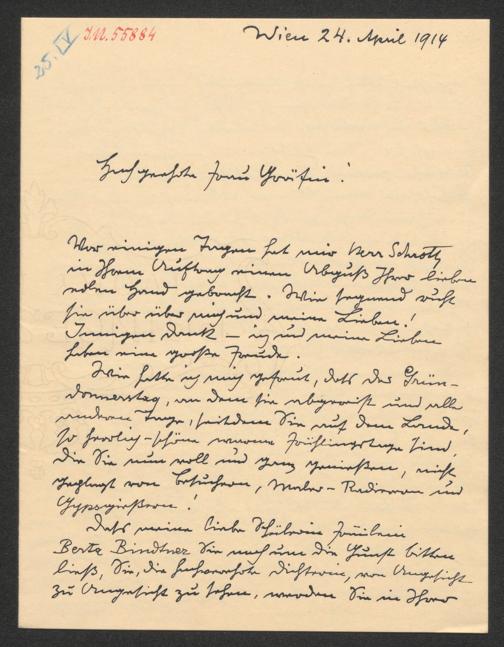 25. IV
J.N. 55884
Wien 24. April 1914
Hochgeehrte Frau Gräfin!
Vor einigen Tagen hat mir Herr Schrott
in Ihrem Auftrag einen Abguß Ihrer lieben
edlen Hand gebracht. Wie segnend ruht
sie über mich und meine Lieben!
Innigen Dank – ich und meine Lieben
haben eine große Freude.
Wie hatte ich mich gefreut, daß der Grün-
donnerstag, an dem Sie abgereist und alle
anderen Tage, seitdem Sie auf dem Lande,
so herrlich-schöne warme Frühlingstage sind,
die Sie nun voll und ganz genießen, nicht
geplagt von Besuchern, Maler-Radierern und
Gypsgießern.
Daß meine liebe Schülerin Fräulein
Berta Bindtner Sie noch um die Gunst bitten
ließ, Sie, die hochverehrte Dichterin, von Angesicht
zu Angesicht zu sehen, werden Sie in Ihrer